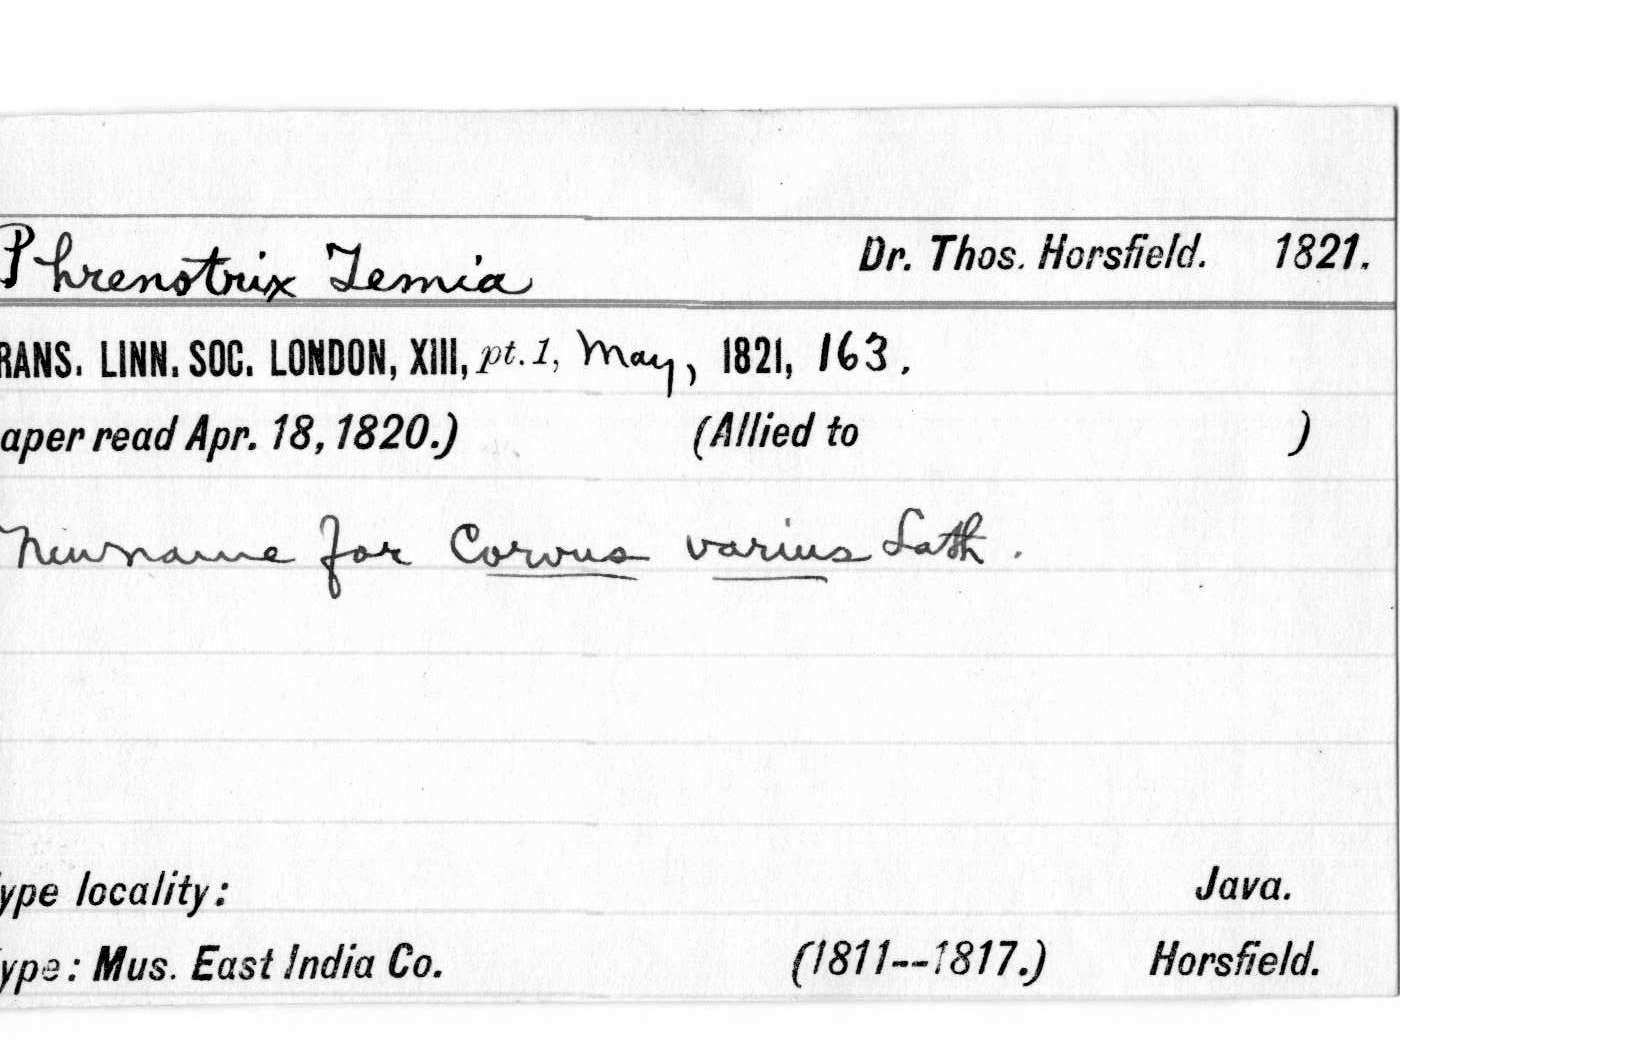 Phrenotrix Temia Dr. Thos. Horsfield. 1821.
RANS. LINN. SOC. LONDON, XIII, pt. 1, May, 1821, 163.
aper read Apr. 18, 1820.) (Allied to )
New name for Corvus varius Lath.
ype locality: Java.
ype: Mus. East India Co. (1811--1817.) Horsfield.